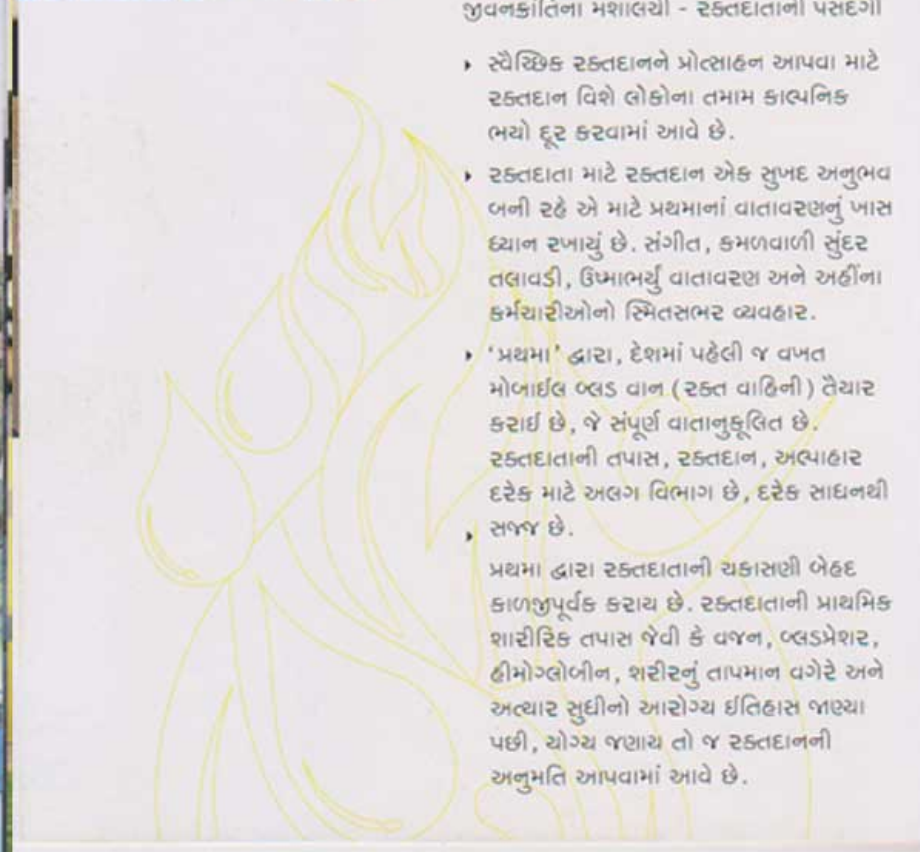 જીવનક્રાંતિના મશાલચી - રક્તદાતાની પસંદગી
સ્વૈચ્છિક રક્તદાનને પ્રોત્સાહન આપવા માટે
રક્તદાન વિશે લોકોના તમામ કાલ્પનિક
ભયો દૂર કરવામાં આવે છે.
રક્તદાતા માટે રક્તદાન એક સુખદ અનુભવ
બની રહે એ માટે પ્રથમાનાં વાતાવરણનું ખાસ
ધ્યાન રખાયું છે. સંગીત, કમળવાળી સુંદર
તલાવડી, ઉષ્માભર્યું વાતાવરણ અને અહીંના
કર્મચારીઓનો સ્મિતસભર વ્યવહાર.
'પ્રથમા' દ્વારા, દેશમાં પહેલી જ વખત
મોબાઈલ બ્લડ વાન (રક્ત વાહિની) તૈયાર
કરાઈ છે, જે સંપૂર્ણ વાતાનુકૂલિત છે.
રક્તદાતાની તપાસ, રક્તદાન, અલ્પાહાર
દરેક માટે અલગ વિભાગ છે, દરેક સાધનથી
સજ્જ છે.
પ્રથમા દ્વારા રક્તદાતાની ચકાસણી બેહદ
કાળજીપૂર્વક કરાય છે. રક્તદાતાની પ્રાથમિક
શારીરિક તપાસ જેવી કે વજન, બ્લડપ્રેશર,
હીમોગ્લોબીન, શરીરનું તાપમાન વગેરે અને
અત્યાર સુધીનો આરોગ્ય ઈતિહાસ જાણ્યા
પછી, યોગ્ય જણાય તો જ રક્તદાનની
અનુમતિ આપવામાં આવે છે.